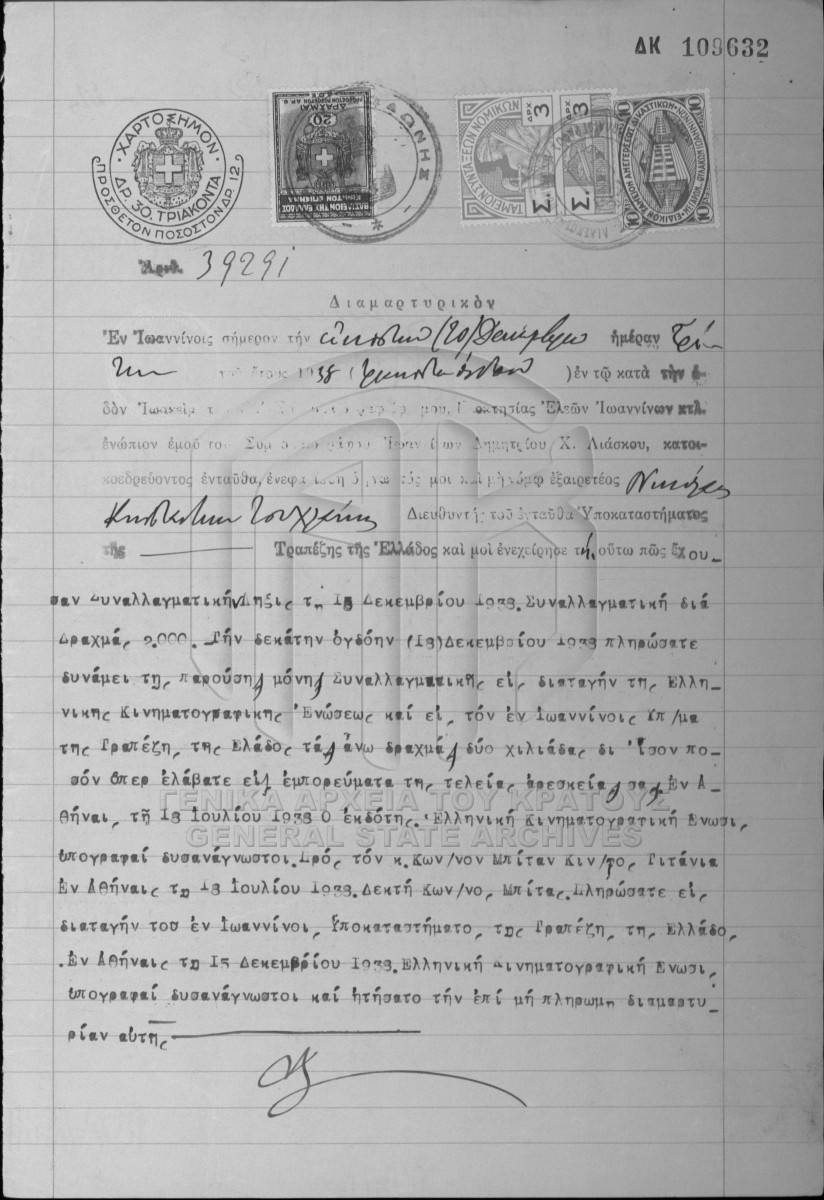 ΔΚ 109632
ΧΑΡΤΟΣΗΜΟΝ
ΔΡ. 30. ΤΡΙΑΚΟΝΤΑ
ΠΡΟΣΘΕΤΟΝ ΠΟΣΟΣΤΟΝ ΔΡ. 12.
ΔΡΑΧΜΑΙ
20
ΒΑΣΙΛΕΙΟΝ ΤΗΣ ΕΛΛΑΔΟΣ
ΤΑΜΕΙΟΝ ΣΥΝΤΑΞΕΩΝ ΝΟΜΙΚΩΝ
ΔΡΧ 3 Σ.
ΔΡΧ 3 Σ.
10 10
10 10
Ἀριθ. 39291
Διαμαρτυρικὸν
Ἐν Ἰωαννίνοις σήμερον τὴν εἰκοστὴν (20) Δεκεμβρίου ἡμέραν Τρί-
την τοῦ ἔτους 1938 ( ) ἐν τῷ κατὰ τὴν ὁ-
δὸν Ἰωακεὶμ μου, ἰδιοκτησίας Ἐλεῶν Ἰωαννίνων κτλ.
ἐνώπιον ἐμοῦ τοῦ Συμβολαιογράφου Ἰωαννίνων Δημητρίου Χ. Λιάσκου, κατοι-
κοεδρεύοντος ἐνταῦθα, ἐνεφανίσθη ὁ γνωστός μοι καὶ μὴ νόμῳ ἐξαιρετέος Νικόλαος
Διευθυντὴς τοῦ ἐνταῦθα Ὑποκαταστήματος
τῆς Τραπέζης τῆς Ἑλλάδος καὶ μοὶ ἐνεχείρησε τὴν οὕτω πως ἔχου-
σαν Συναλλαγματικήν Λῆξις τῃ 15 Δεκεμβρίου 1938. Συναλλαγματική διά
Δραχμάς 2.000. Τήν δεκάτην ὀγδόην (18) Δεκεμβρίου 1938 πληρώσατε
δυνάμει τῆς παρούσης μόνης Συναλλαγματικῆς εἰς διαταγήν τῆς Ἑλλη-
νικῆς Κινηματογραφικῆς Ἑνώσεως καί εἰς τόν ἐν Ἰωαννίνοις Υπ/μα
τῆς Τραπέζης τῆς Ἑλάδος τάς ἄνω δραχμάς δύο χιλιάδας δι' ἴσον πο-
σόν ὅπερ ἐλάβατε εἰς ἐμπορεύματα τῆς τελείας ἀρεσκείας σας Ἐν Α-
θήναις τῇ 18 Ἰουλίου 1938 Ο ἐκδότης. Ἑλληνική Κινηματογραφική Ενωσις
ὑπογραφαί δυσανάγνωστοι. Πρός τόν κ. Κων/νον Μπίταν Κιν/φος Τιτάνια
Ἐν Ἀθήναις τῃ 18 Ἰουλίου 1938. Δεκτή Κων/νος Μπίτας. Πληρώσατε εἰς
διαταγήν του ἐν Ἰωαννίνοις Ὑποκαταστήματος τῆς Τραπέζης τῆς Ἑλλάδος
.Ἐν Ἀθήναις τῃ 15 Δεκεμβρίου 1938. Ἑλληνική Κινηματογραφική Ενωσις
ὑπογραφαί δυσανάγνωστοι καί ᾐτήσατο τήν ἐπί μή πληρωμῃ διαμαρτυ-
ρίαν αὐτῆς
ΓΕΝΙΚΑ ΑΡΧΕΙΑ ΤΟΥ ΚΡΑΤΟΥΣ
GENERAL STATE ARCHIVES